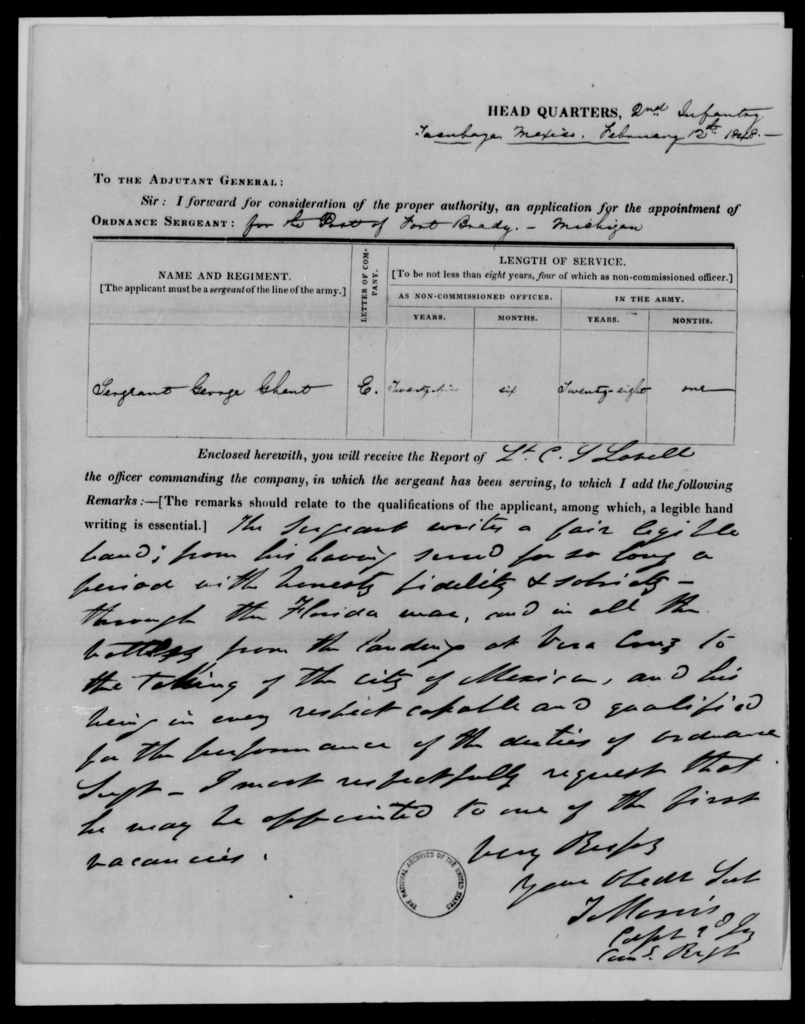 HEAD QUARTERS, 2nd Infantry
Tacubaya Mexico. February 12th 1848.—
TO THE ADJUTANT GENERAL:
Sir: I forward for consideration of the proper authority, an application for the appointment of
ORDNANCE SERGEANT: for the Post of Fort Brady. — Michigan
NAME AND REGIMENT.
[The applicant must be a sergeant of the line of the army.]
LETTER OF COM-
PANY.
LENGTH OF SERVICE.
[To be not less than eight years, four of which as non-commissioned officer.]
AS NON-COMMISSIONED OFFICER.
IN THE ARMY.
YEARS.
MONTHS.
YEARS.
MONTHS.
Sergeant George Ghent
E.
six
Twenty-eight
one
Enclosed herewith, you will receive the Report of Lt. C. S Lovell
the officer commanding the company, in which the sergeant has been serving, to which I add the following
Remarks:—[The remarks should relate to the qualifications of the applicant, among which, a legible hand
writing is essential.] The sergeant writes a fair legible
hand; from his having served for so long a
period with honesty fidelity & sobriety —
through the Florida war, and in all the
battles from the landing at Vera Cruz to
the taking of the city of Mexico, and his
being in every respect capable and qualified
for the performance of the duties of ordnance
Sergt — I most respectfully request that
he may be appointed to one of the first
vacancies.
Very Respy
Your Obedt Sert
T Morris
Capt 2d Inf
Comg. Regt
THE NATIONAL ARCHIVES OF THE UNITED STATES